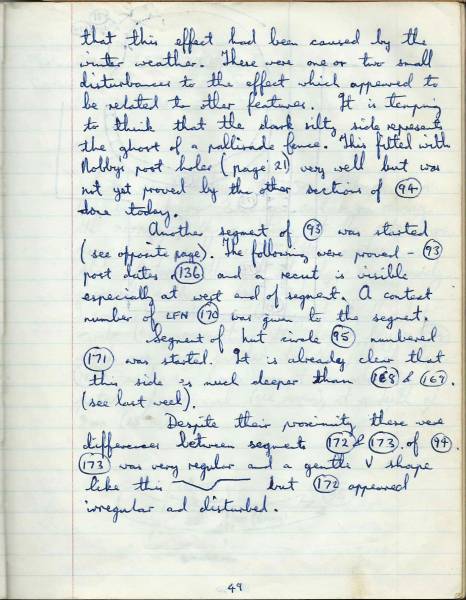 that this effect had been caused by the
winter weather. There were one or two small
disturbances to the effect which appeared to
be related to other features. It is temping
to think that the dark silty side represents
the ghost of a pallisade fence. This fitted with
Nobby's post holes (page 21) very well but was
not yet proved by the other sections of 94
done today.
Another segment of 93 was started
(see opposite page). The following were proved - 93
post dates 136 and a recut is visible
especially at west end of segment. A context
number of LFN 170 was given to the segment.
Segment of hut circle 95 numbered
171 was started. It is already clear that
this side is much deeper than 168 & 169.
(see last week).
Despite their proximity there were
differences between segments 172 & 173 of 94.
173 was very regular and a gentle V shape
like this but 172 appeared
irregular and disturbed.
49